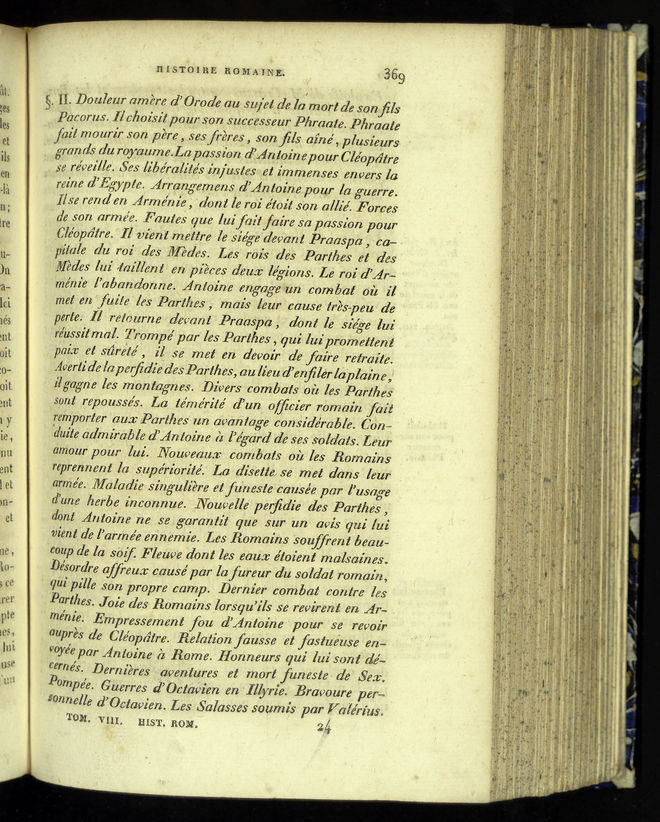 HISTOIRE ROMAINE. 369
§. II. Douleur amère d'Orode au sujet de la mort de son fils
Pacorus. Il choisit pour son successeur Phraate. Phraate
fait mourir son père, ses frères, son fils aîné, plusieurs
grands du royaume. La passion d'Antoine pour Cléopâtre
se réveille. Ses libéralités injustes et immenses envers la
reine d'Egypte. Arrangemens d'Antoine pour la guerre.
Il se rend en Arménie, dont le roi étoit son allié. Forces
de son armée. Fautes que lui fait faire sa passion pour
Cléopâtre. Il vient mettre le siége devant Praaspa, ca-
pitale du roi des Mèdes. Les rois des Parthes et des
Mèdes lui taillent en pièces deux légions. Le roi d'Ar-
ménie l'abandonne. Antoine engage un combat où il
met en fuite les Parthes, mais leur cause très-peu de
perte. Il retourne devant Praaspa, dont le siége lui
réussit mal. Trompé par les Parthes, qui lui promettent
paix et sûreté, il se met en devoir de faire retraite.
Averti de la perfidie des Parthes, au lieu d'enfiler la plaine,
il gagne les montagnes. Divers combats où les Parthes
sont repoussés. La témérité d'un officier romain fait
remporter aux Parthes un avantage considérable. Con-
duite admirable d'Antoine à l'égard de ses soldats. Leur
amour pour lui. Nouveaux combats où les Romains
reprennent la supériorité. La disette se met dans leur
armée. Maladie singulière et funeste causée par l'usage
d'une herbe inconnue. Nouvelle perfidie des Parthes,
dont Antoine ne se garantit que sur un avis qui lui
vient de l'armée ennemie. Les Romains souffrent beau-
coup de la soif. Fleuve dont les eaux étoient malsaines.
Désordre affreux causé par la fureur du soldat romain,
qui pille son propre camp. Dernier combat contre les
Parthes. Joie des Romains lorsqu'ils se revirent en Ar-
ménie. Empressement fou d'Antoine pour se revoir
auprès de Cléopâtre. Relation fausse et fastueuse en-
voyée par Antoine à Rome. Honneurs qui lui sont dé-
cernés. Dernières aventures et mort funeste de Sex.
Pompée. Guerres d'Octavien en Illyrie. Bravoure per-
sonnelle d'Octavien. Les Salasses soumis par Valérius.
TOM. VIII. HIST. ROM. 24